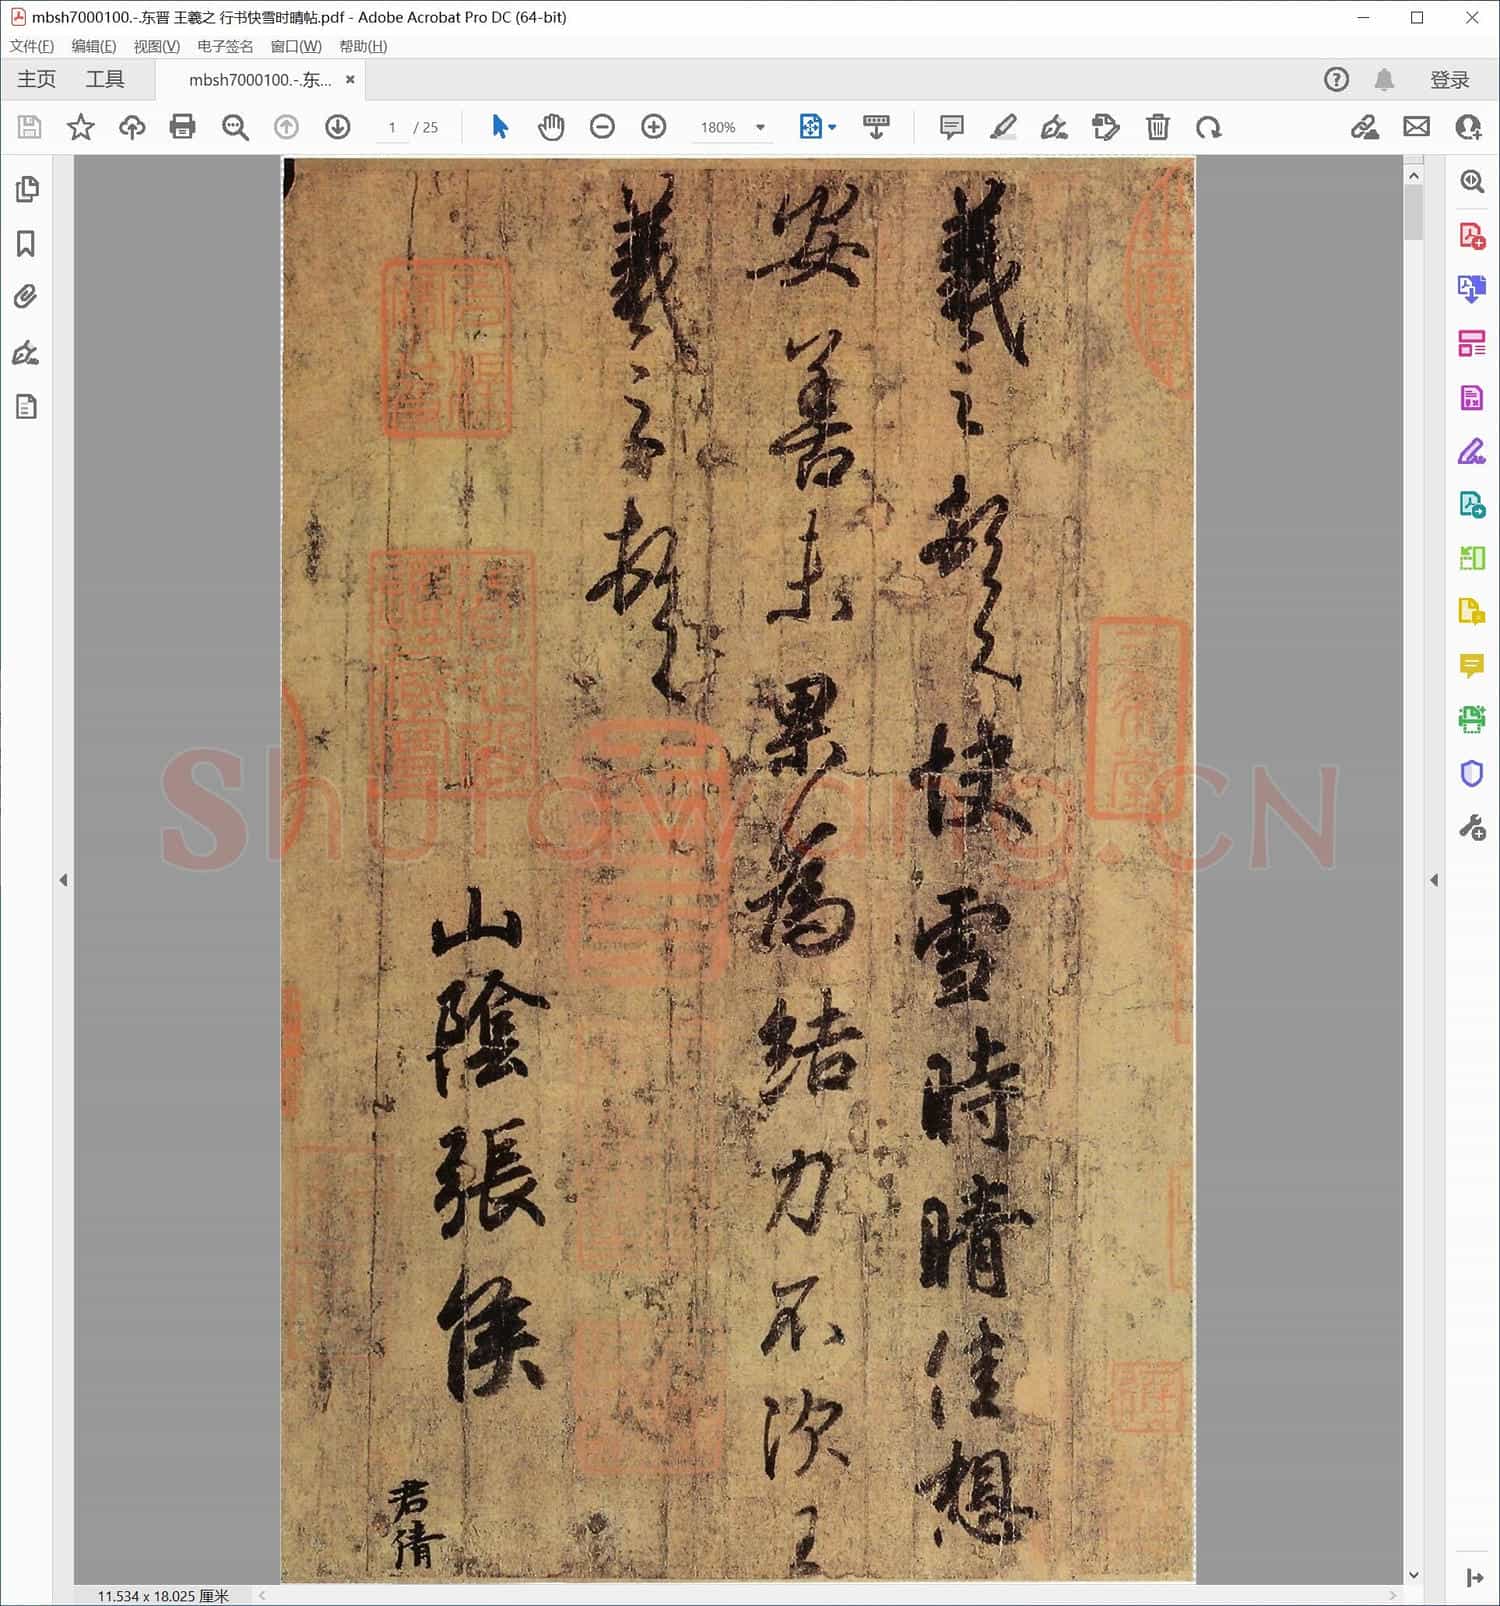 mbsh7000100.-.东晋 王羲之 行书快雪时晴帖.pdf - Adobe Acrobat Pro DC (64-bit)
文件(F) 编辑(E) 视图(V) 电子签名 窗口(W) 帮助(H)
主页 工具 mbsh7000100.-.东... × 登录
1 / 25 180%
羲之頓首快雪時晴佳想
安善未果為結力不次王
羲之頓首
山陰張侯
君倩
ShufaWang.CN
11.534 x 18.025 厘米